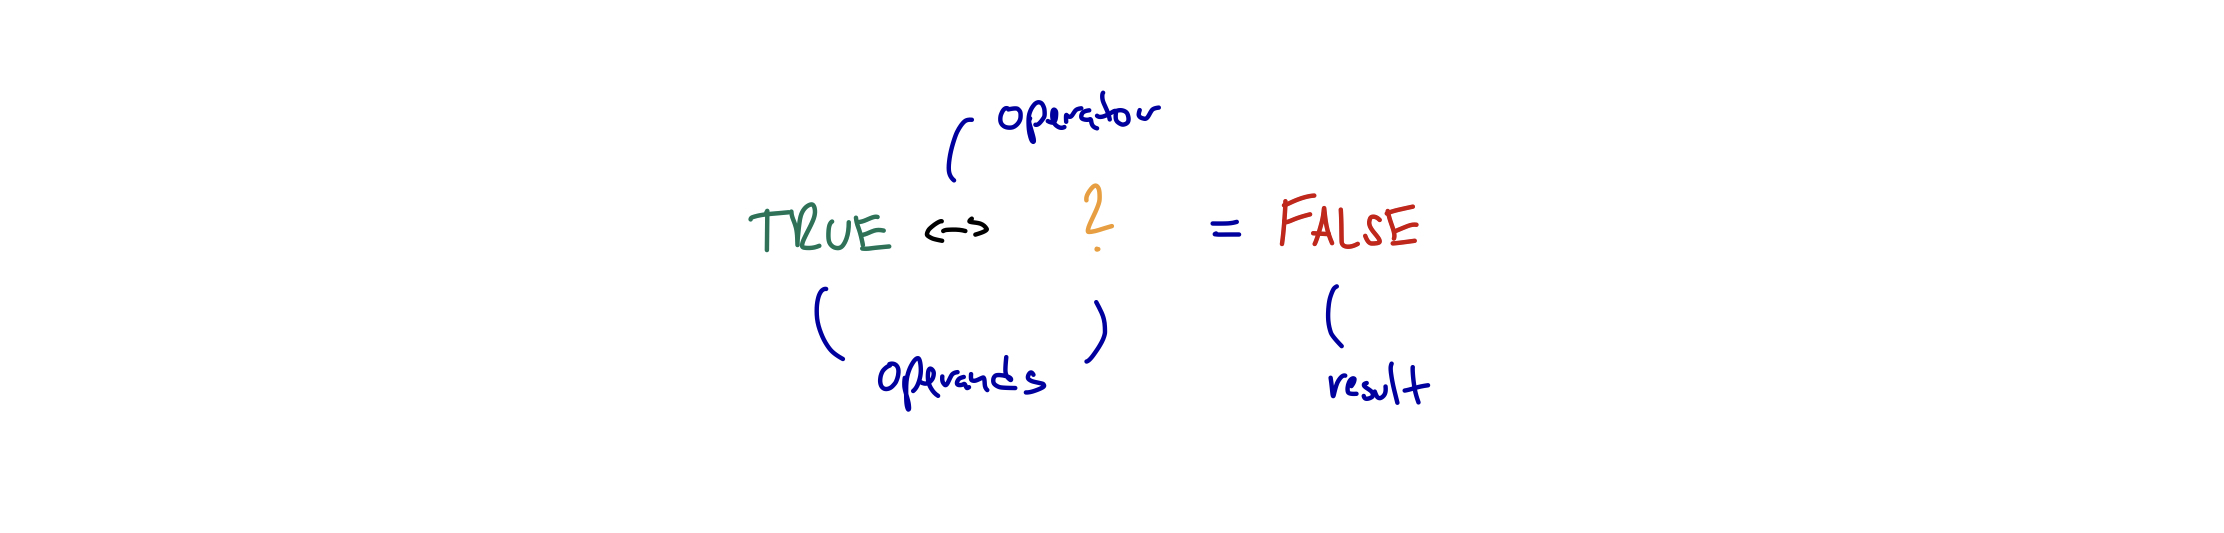 operator
TRUE <-> ? = FALSE
operands
result